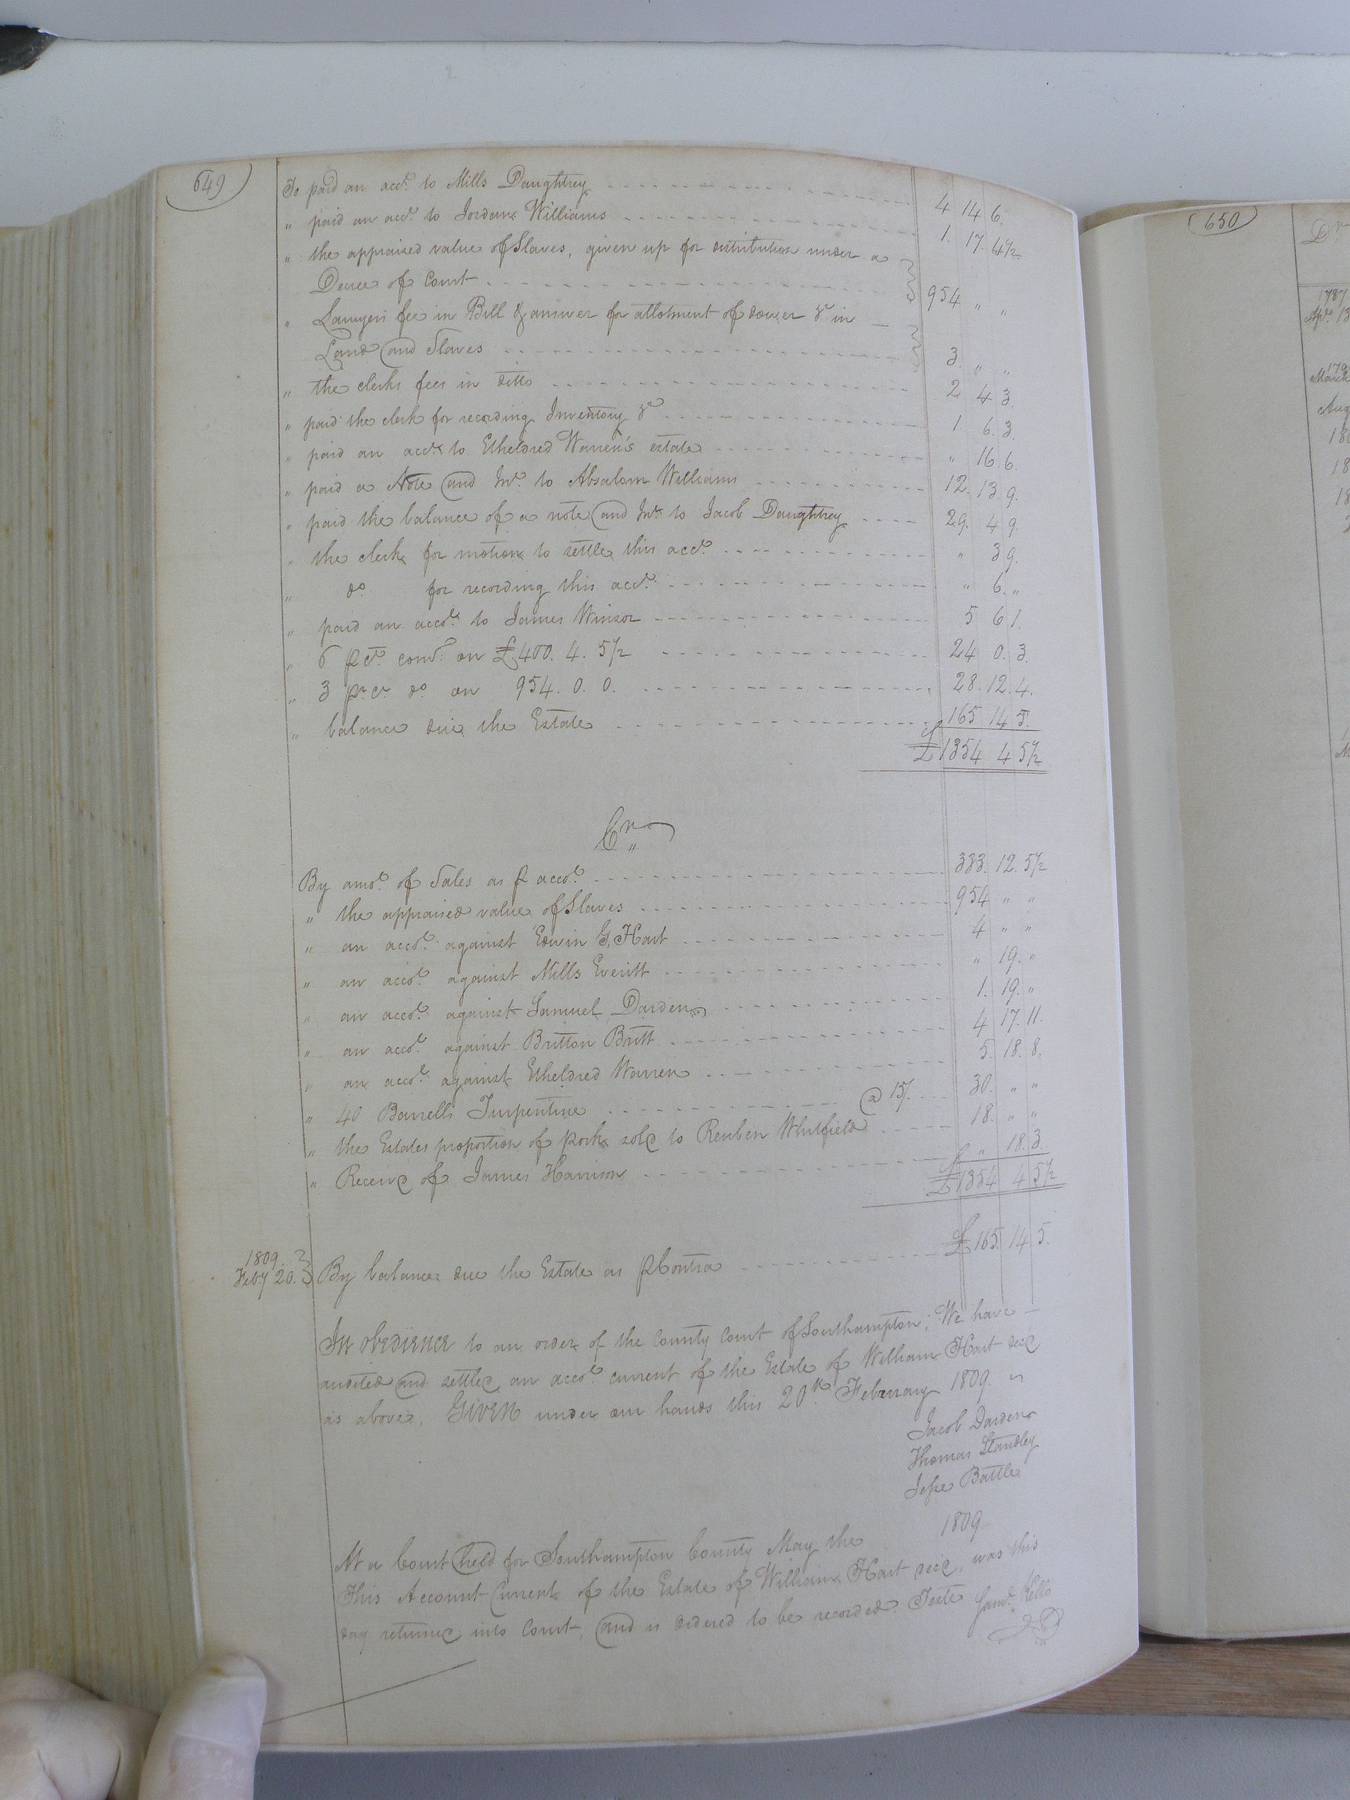 649
To paid an acco.t to Mills Daughtrey 4 14 6.
" paid an acco.t to Jordan Williams 1. 17. 4½
" the appraised value of Slaves, given up for distribution under a
Decree of Court 954 " "
" Lawyers fee in Bill & answer for allotment of dower &c in
Land and Slaves 3. " "
" the clerks fees in ditto 2 4 3.
" paid the clerk for recording Inventory &c 1 6. 3.
" paid an acco.t to Etheldred Warren's estate " 16. 6.
" paid a Note and Int. to Absalom Williams 12. 13. 9.
" paid the balance of a note and Int. to Jacob Daughtrey 29. 4 9.
" the clerk for motion to settle this acco.t " 3 9.
" do for recording this acco.t " 6. "
" paid an acco.t to James Winsor 5 6 1.
" 6 p Ct. com.s on £400. 4. 5½ 24 0. 3.
" 3 pr Ct. do on 954. 0. 0. 28. 12. 4.
" balance due the Estate 165 14 5.
£1354 4 5½
Cr.
By amo.t of Sales as p acco.t 383. 12. 5½
" the appraised value of Slaves 954 " "
" an acco.t against Edwin G. Hart 4 " "
" an acco.t against Mills Everitt " 19. "
" an acco.t against Samuel Darden 1. 19. "
" an acco.t against Britton Britt 4 17. 11.
" an acco.t against Etheldred Warren 5. 18. 8.
" 40 Barrells Turpentine @ 15/. 30. " "
" the Estates proportion of pork sold to Reuben Whitfield 18. " "
" Receiv'd of James Harrison " 18. 3
£1354 4 5½
1809
Feb'y 20. By balance due the Estate as p Contra £165. 14 5.
In obedience to an order of the County Court of Southampton; We have
audited and settled an acco.t current of the Estate of William Hart dec'd
as above. Given under our hands this 20th February 1809.
Jacob Darden
Thomas Standley
Jesse Battle
At a Court held for Southampton County May the 1809
This Account Current of the Estate of William Hart dec'd, was this
day returned into Court, and is ordered to be recorded. Teste Sam.l Kello
650
Dr
1787